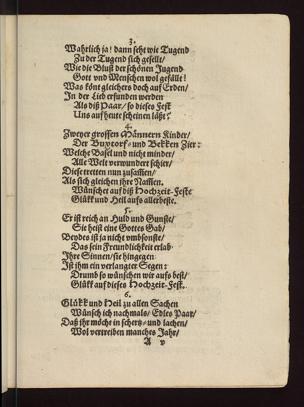 3.
Wahrlich ja! dann seht wie Tugend
Zu der Tugend sich gesellt/
Wie die Bluß der schönen Jugend
Gott und Menschen wol gefällt!
Was könt gleichers doch auf Erden/
In der Lieb erfunden werden
Als diß Paar/ so dieses Fest
Uns auf heute scheinen läßt?
4.
Zweyer grossen Männern Kinder/
Der Buxtorf- und Bekken Zier:
Welche Basel und nicht minder/
Alle Welt verwundert schier/
Diese tretten nun zusaṁen/
Als sich gleichen ihre Naṁen.
Wünschet auf diß Hochzeit-Fest
Glükk und Heil aufs allerbeste.
5.
Er ist reich an Huld und Gunste/
Sie heist eine Gottes Gab/
Beydes ist ja nicht umbsonste/
Das sein Freundlichkeit erlab
Ihre Sinnen/ sie hingegen
Ist ihm ein verlangter Segen:
Drumb so wünschen wir aufs best/
Glükk auf dieses Hochzeit-Fest.
6.
Glükk und Heil zu allen Sachen
Wünsch ich nachmals/ Edles Paar/
Daß ihr möcht in schertz- und lachen/
Wol vertreiben manches Jahr/
A v